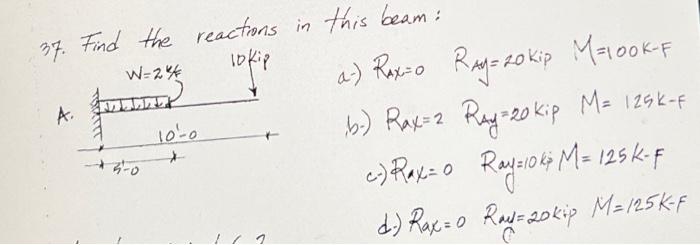 37. Find the reactions in this beam:
W=2 k/f
10kip
A.
10'-0
5'-0
a-) RAX=0 RAy=20kip M=100K-F
b-) RAX=2 RAy=20kip M= 125K-F
c-) RAX=0 Ray=10kip M=125K-F
d-) Rax=0 Ray=20kip M=125K-F